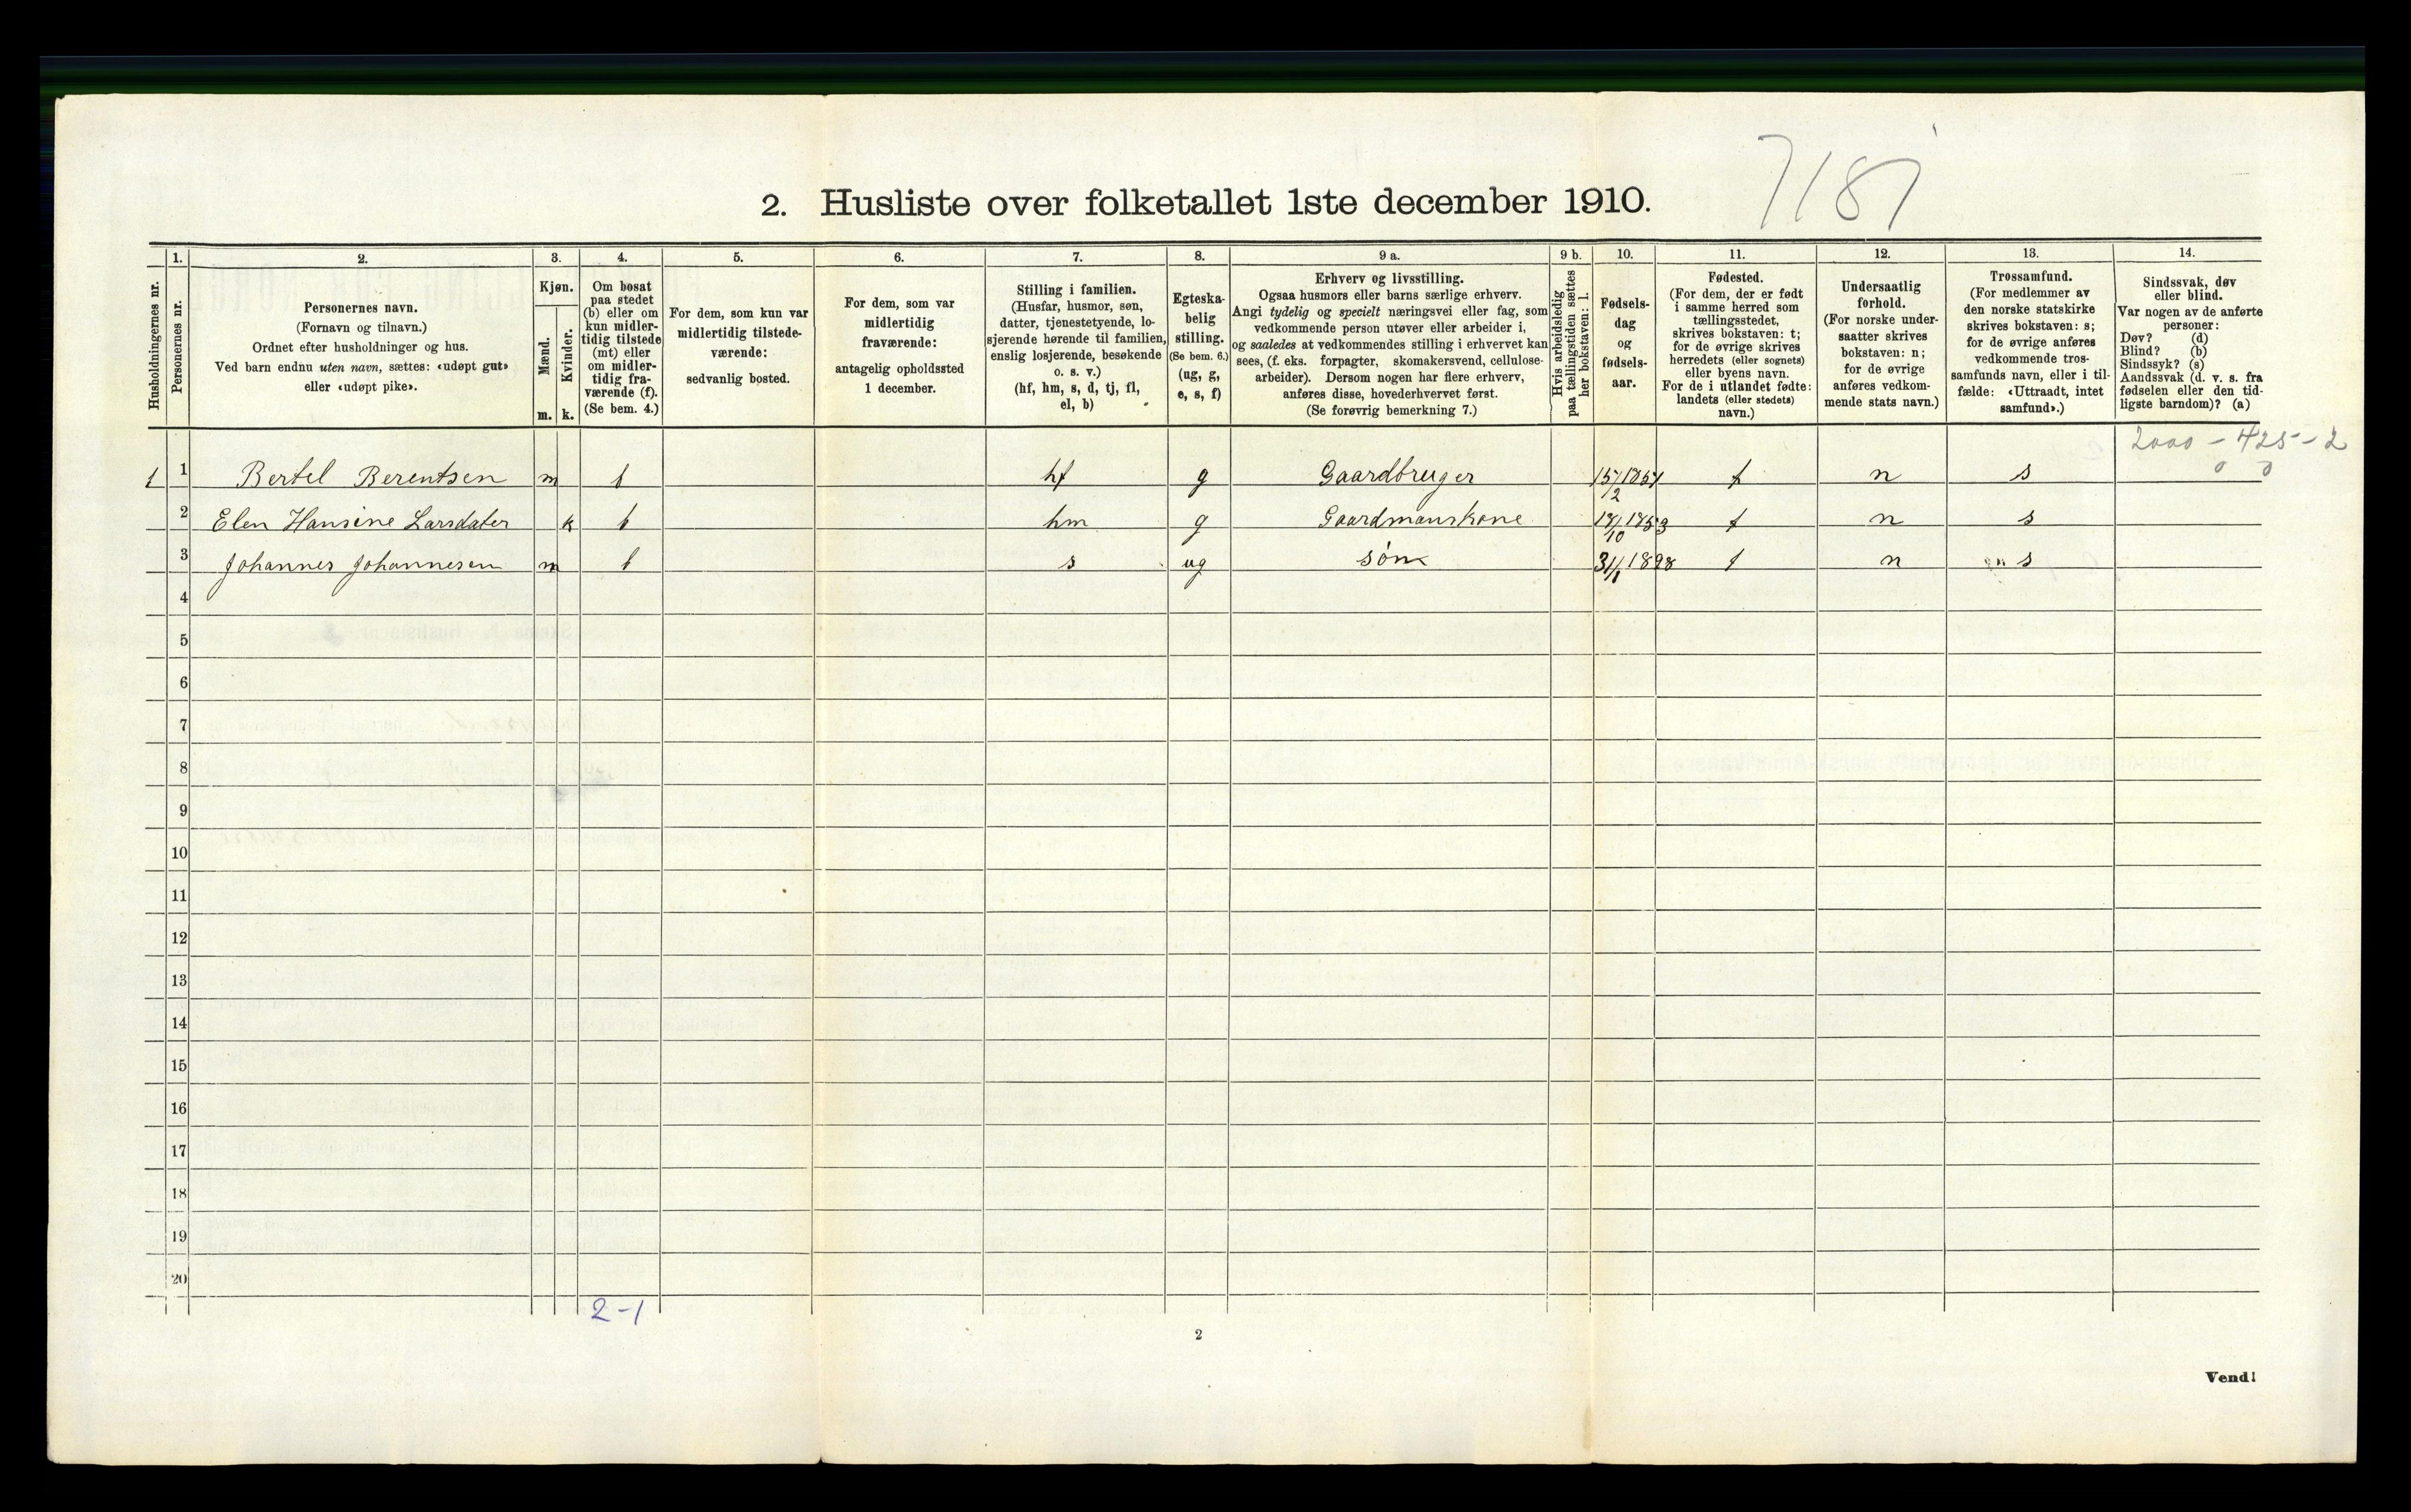 7187
2. Husliste over folketallet 1ste december 1910.
Husholdningernes nr.
1.
Personernes nr.
2.
Personernes navn.
(Fornavn og tilnavn.)
Ordnet efter husholdninger og hus.
Ved barn endnu uten navn, sættes: «udøpt gut»
eller «udøpt pike».
3.
Kjøn.
Mænd.
m.
Kvinder.
k.
4.
Om bosat
paa stedet
(b) eller om
kun midler-
tidig tilstede
(mt) eller
om midler-
tidig fra-
værende (f).
(Se bem. 4.)
5.
For dem, som kun var
midlertidig tilstede-
værende:
sedvanlig bosted.
6.
For dem, som var
midlertidig
fraværende:
antagelig opholdssted
1 december.
7.
Stilling i familien.
(Husfar, husmor, søn,
datter, tjenestetyende, lo-
sjerende hørende til familien,
enslig losjerende, besøkende
o. s. v.)
(hf, hm, s, d, tj, fl,
el, b)
8.
Egteska-
belig
stilling.
(Se bem. 6.)
(ug, g,
e, s, f)
9 a.
Erhverv og livsstilling.
Ogsaa husmors eller barns særlige erhverv.
Angi tydelig og specielt næringsvei eller fag, som
vedkommende person utøver eller arbeider i,
og saaledes at vedkommendes stilling i erhvervet kan
sees, (f. eks. forpagter, skomakersvend, cellulose-
arbeider). Dersom nogen har flere erhverv,
anføres disse, hovederhvervet først.
(Se forøvrig bemerkning 7.)
9 b.
Hvis arbeidsledig
paa tællingstiden sættes
her bokstaven: l.
10.
Fødsels-
dag
og
fødsels-
aar.
11.
Fødested.
(For dem, der er født
i samme herred som
tællingsstedet,
skrives bokstaven: t;
for de øvrige skrives
herredets (eller sognets)
eller byens navn.
For de i utlandet fødte:
landets (eller stedets)
navn.)
12.
Undersaatlig
forhold.
(For norske under-
saatter skrives
bokstaven: n;
for de øvrige
anføres vedkom-
mende stats navn.)
13.
Trossamfund.
(For medlemmer av
den norske statskirke
skrives bokstaven: s;
for de øvrige anføres
vedkommende tros-
samfunds navn, eller i til-
fælde: «Uttraadt, intet
samfund».)
14.
Sindssvak, døv
eller blind.
Var nogen av de anførte
personer:
Døv? (d)
Blind? (b)
Sindssyk? (s)
Aandssvak (d. v. s. fra
fødselen eller den tid-
ligste barndom)? (a)
2000 - 425 - 2
0 0
1 1 Bertel Berentsen m b hf g Gaardbruger t n s
2 Elen Hansine Larsdater k b hm g Gaardmanskone 18/10 1853 t n s
3 Johannes Johannesen m b s ug søn 31/1 1898 t n s
4
5
6
7
8
9
10
11
12
13
14
15
16
17
18
19
20
2-1
2
Vend!